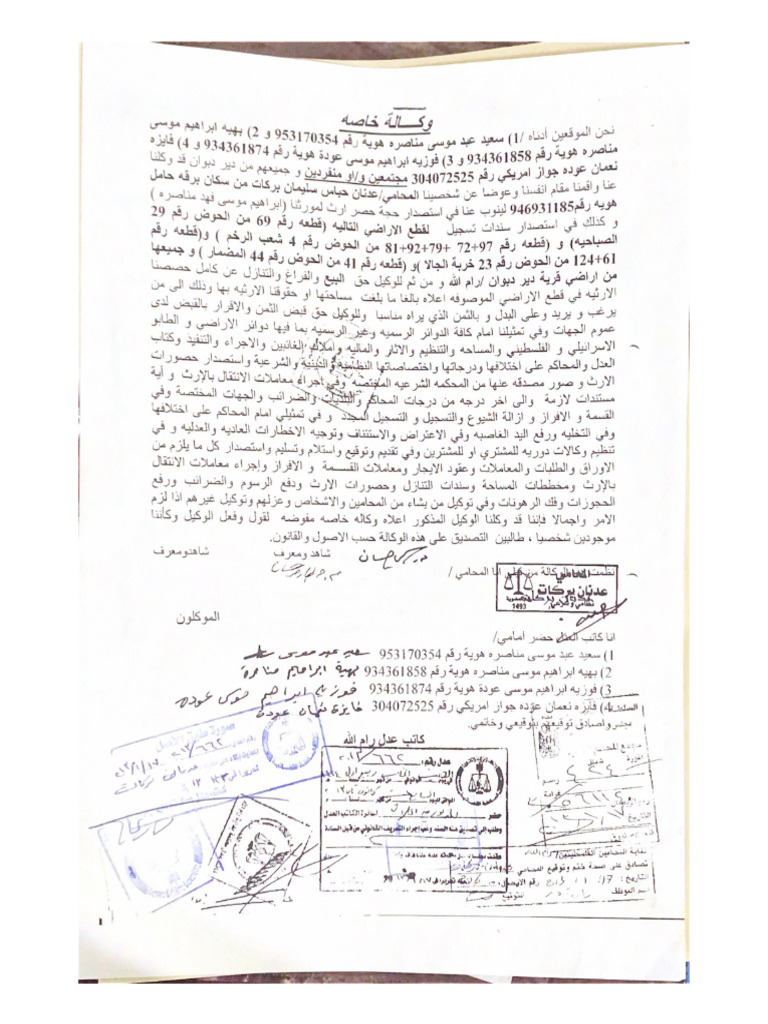 وكالة خاصه
نحن الموقعين أدناه /1) سعيد عبد موسى مناصره هوية رقم 953170354 و 2) بهيه ابراهيم موسى
مناصره هوية رقم 934361858 و 3) فوزيه ابراهيم موسى عودة هوية رقم 934361874 و 4) فايزه
نعمان عوده جواز امريكي رقم 304072525 مجتمعين و/او منفردين و جميعهم من دير دبوان قد وكلنا
عنا واقمنا مقام انفسنا وعوضا عن شخصينا المحامي/عدنان حباس سليمان بركات من سكان برقه حامل
هويه رقم946931185 لينوب عنا في استصدار حجة حصر ارث لمورثنا (ابراهيم موسى فهد مناصره )
و كذلك في استصدار سندات تسجيل لقطع الاراضي التاليه (قطعه رقم 69 من الحوض رقم 29
الصباحيه) و (قطعه رقم 97+ 72 +79 +92+81 من الحوض رقم 4 شعب الرخم ) و(قطعه رقم
61+124 من الحوض رقم 23 خربة الجالا)و( قطعه رقم 41 من الحوض رقم 44 المضمار ) و جميعها
من اراضي قرية دير دبوان /رام الله و من ثم للوكيل حق البيع والفراغ والتنازل عن كامل حصصنا
الارثيه في قطع الاراضي الموصوفه اعلاه بالغا ما بلغت مساحتها او حقوقنا الارثيه بها وذلك الى من
يرغب و يريد وعلى البدل و بالثمن الذي يراه مناسبا وللوكيل حق قبض الثمن والاقرار بالقبض لدى
عموم الجهات وفي تمثيلنا امام كافة الدوائر الرسميه وغير الرسميه بما فيها دوائر الاراضي و الطابو
الاسرائيلي و الفلسطيني والمساحه والتنظيم والاثار والماليه واملاك الغائبين والاجراء والتنفيذ وكتاب
العدل والمحاكم على اختلافها ودرجاتها واختصاصاتها النظميه والدينية والشرعية واستصدار حصورات
الارث و صور مصدقه عنها من المحكمه الشرعيه المختصه وفي إجراء معاملات الانتقال بالإرث و أية
مستندات لازمة والى اخر درجه من درجات المحاكم والبلديات والضرائب والجهات المختصة وفي
القسمة و الافراز و ازالة الشيوع والتسجيل و التسجيل المجدد و في تمثيلي امام المحاكم على اختلافها
وفي التخليه ورفع اليد الغاصبه وفي الاعتراض والاستئناف وتوجيه الاخطارات العاديه والعدليه و في
تنظيم وكالات دوريه للمشتري او للمشترين وفي تقديم وتوقيع واستلام وتسليم واستصدار كل ما يلزم من
الاوراق والطلبات والمعاملات وعقود الايجار ومعاملات القسمة و الافراز وإجراء معاملات الانتقال
بالإرث ومخططات المساحة وسندات التنازل وحصورات الارث ودفع الرسوم والضرائب ورفع
الحجوزات وفك الرهونات وفي توكيل من يشاء من المحامين والاشخاص وعزلهم وتوكيل غيرهم اذا لزم
الامر واجمالا فإننا قد وكلنا الوكيل المذكور اعلاه وكاله خاصه مفوضه لقول وفعل الوكيل وكأننا
موجودين شخصيا ، طالبين التصديق على هذه الوكالة حسب الاصول والقانون.
شاهد ومعرف شاهدومعرف
نظمت الوكالة من قبلي انا المحامي /
المحامي
عدنان بركات
1493
الموكلون
انا كاتب العدل حضر امامي/
1) سعيد عبد موسى مناصره هوية رقم 953170354
2) بهيه ابراهيم موسى مناصره هوية رقم 934361858 بهية ابراهيم مناصرة
3) فوزيه ابراهيم موسى عودة هوية رقم 934361874 فوزيه ابراهيم موسى عوده
4) فايزه نعمان عوده جواز امريكي رقم 304072525 فايزة نعمان عودة
واصادق توقيعهم بتوقيعي وخاتمي.
كاتب عدل رام الله
عدل رقم:
حضر
لدائرة الكاتب العدل
وطلب إلي تصديق هذا السند وبعد إجراء التعريف القانوني من قبل السادة
نقابة المحامين الفلسطينيين
تصادق على صحة ختم وتوقيع المحامي
التاريخ:
رقم الايصال
اسم الموظف
التوقيع